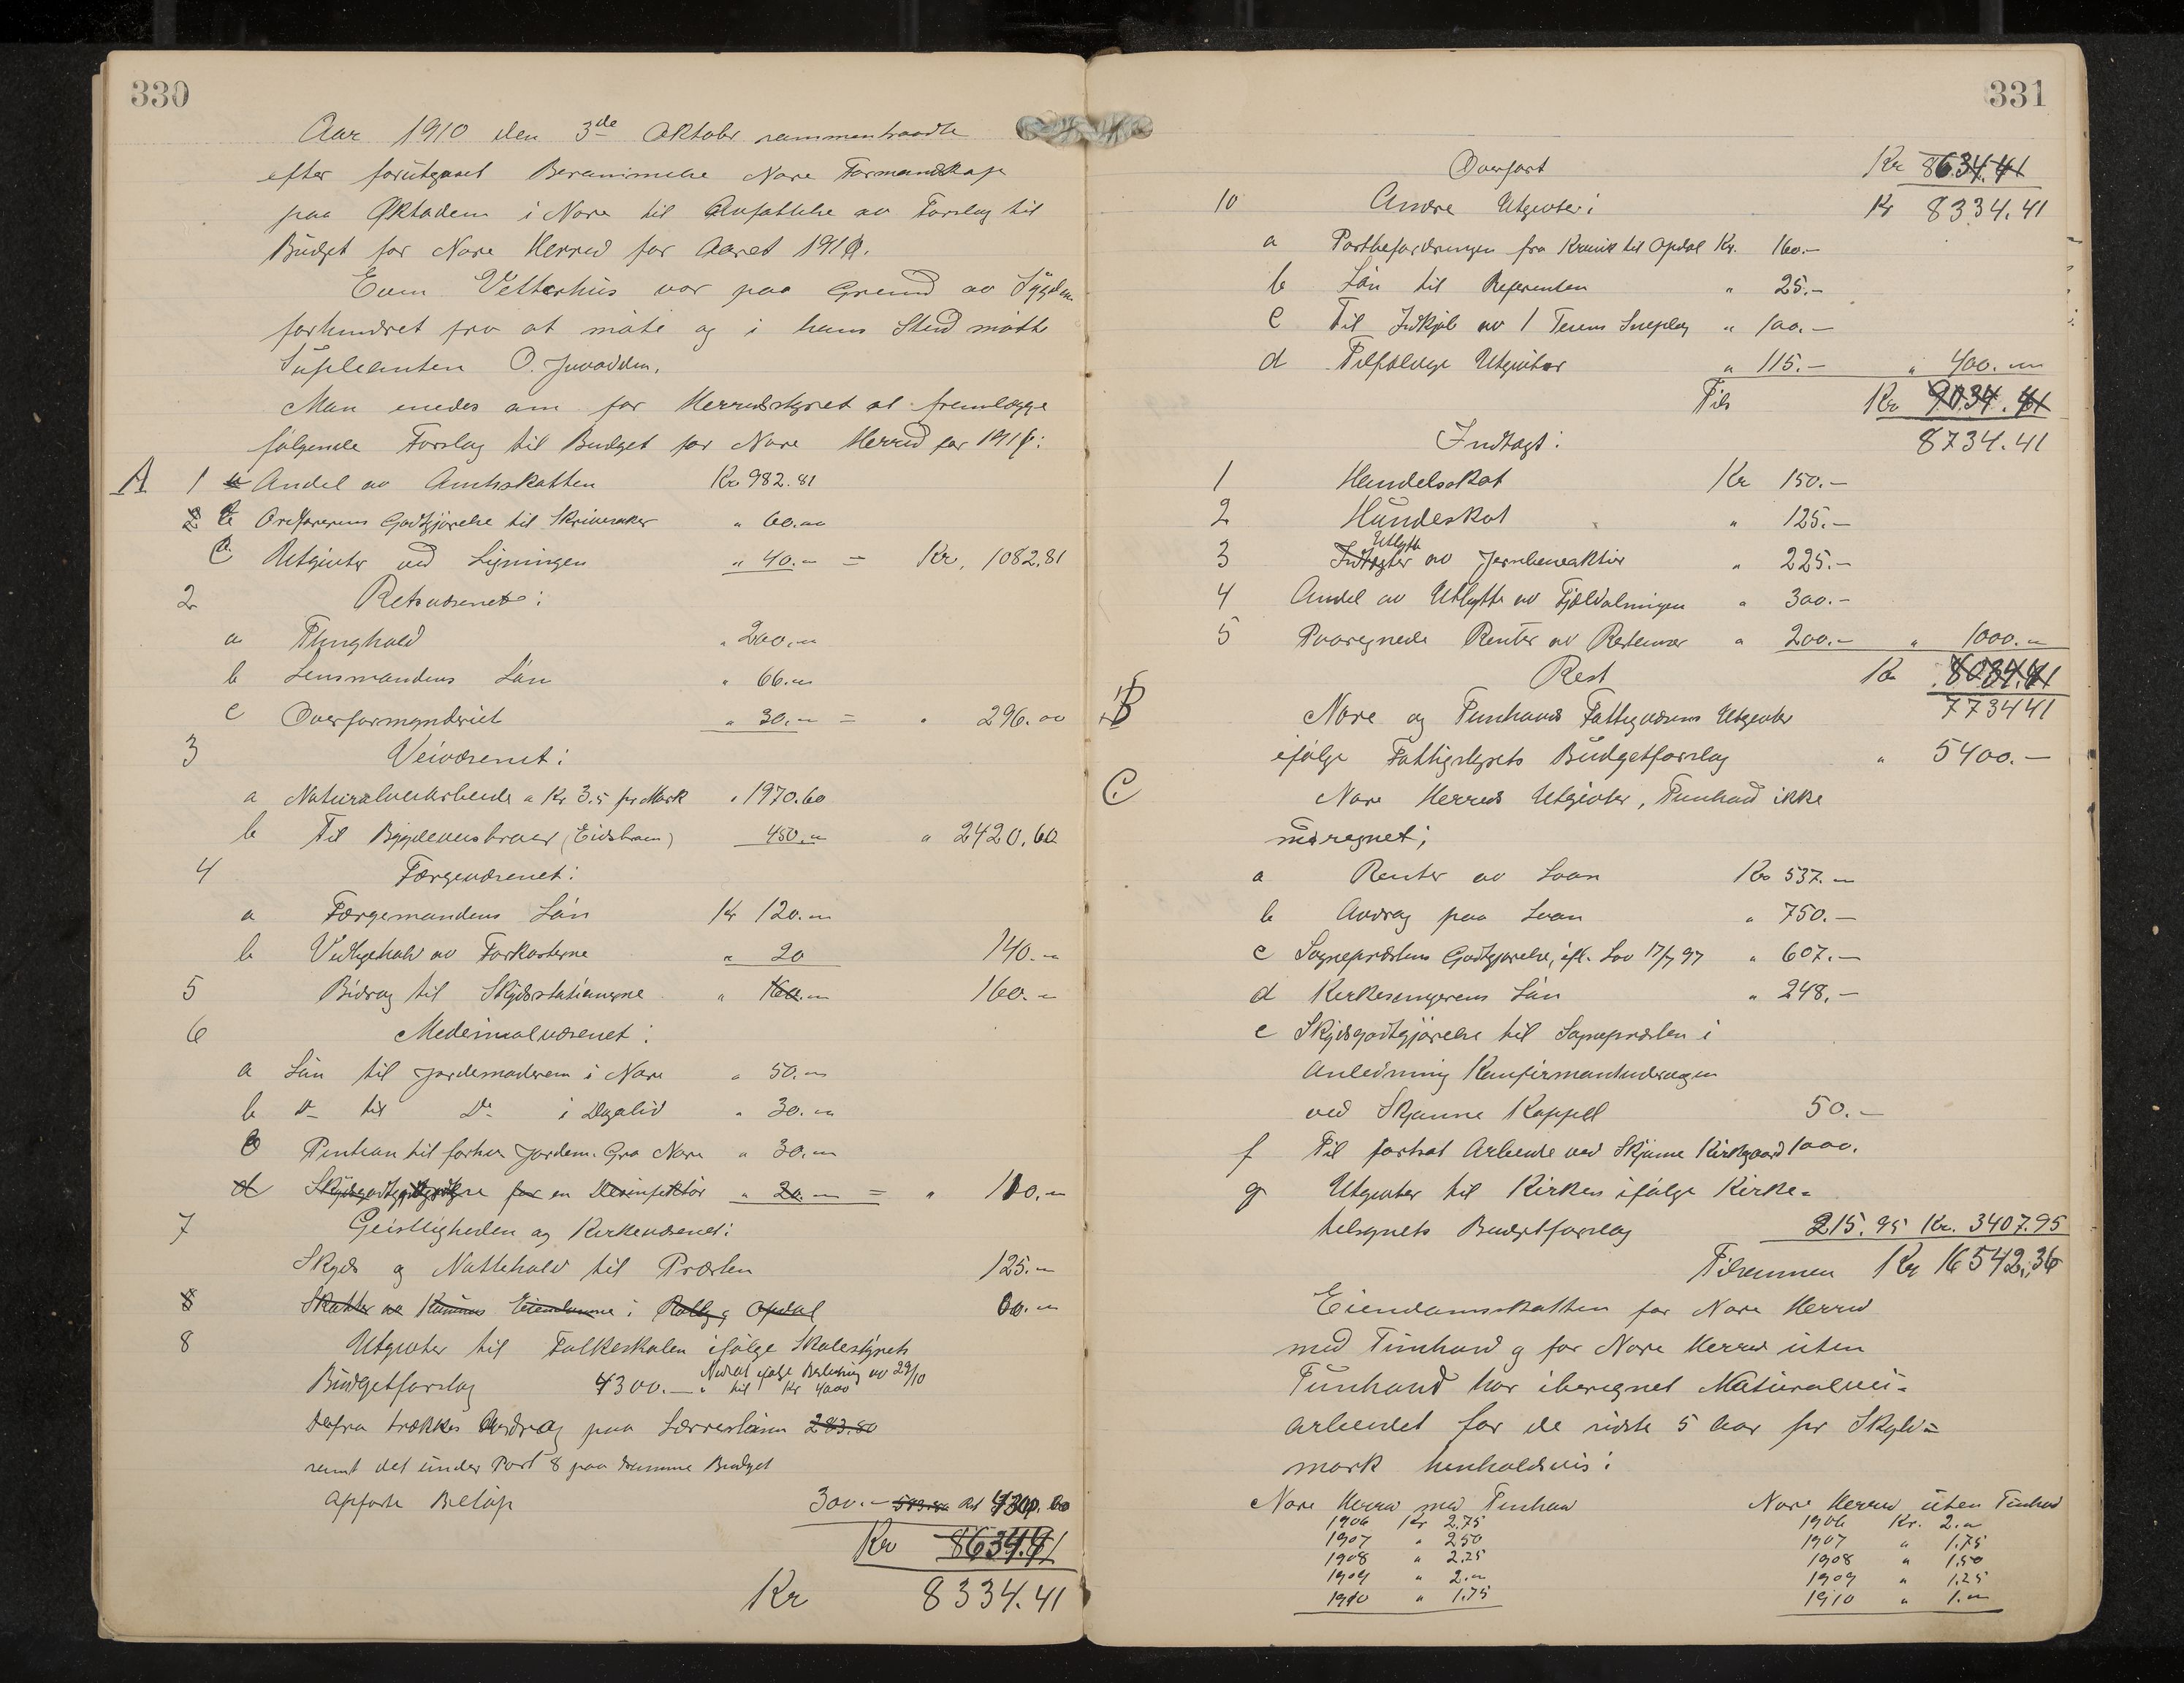 330
Aar 1910 den 3de Oktober sammentraadte
efter forutgaaet Berammelse Nore Formandskap
paa Øktedem i Nore til Anfattelse av Forslag til
Budget for Nore Herred for Aaret 1910.
Even Vetterhus var paa Grund av Sygdom
forhindret fra at møte og i hans Sted møtte
Supleanten O. Juvodden.
Man enedes om for Herredstyret at fremlægge
følgende Forslag til Budget for Nore Herred for 1911:
A 1 a Andel av Amtskatten Kr 982.81
2 b Ordførerens Godtgjørelse til Skrivesaker " 60.00
c Utgivter ved Ligningen " 40.- = Kr. 1082.81
2 Retsvæsenet:
a Thinghold " 200.-
b Lensmandens Løn " 66.-
c Overformynderiet " 30.- = " 296.00
3 Veivæsenet:
a Naturalveiarbeide a Kr 3.5 pr Mark " 1970.60
b Til Bygdeveisbroer (Eidsbroen) 450.- " 2420.60
4 Færgevæsenet:
a Færgemandens Løn Kr 120.-
b Vedligehold av Farkosterne " 20 140.-
5 Bidrag til Skydsstationerne " 160.- 160.-
6 Medicinalvæsenet:
a Løn til Jordemoderen i Nore " 50.-
b Do til Do i Dagalid " 30.-
c Pension til forhen Jordem. Gro Nore " 30.-
d Skydsgodtgjørelse for en Desinfektør " 20.- = " 110.-
7 Geistligheden og Kirkevæsenet:
Skyds og Nattehold til Præsten 125.-
8 Skatter av Kommunens Eiendomme i Rollag og Opdal 00.-
8 Utgivter til Folkeskolen ifølge Skolestyrets
Budgetforslag 4300.- Nedsat ifølge Beslutning av 29/10 til Kr 4000
Derfra trækkes Avdrag paa Lærerløn 283.80
samt det under Post 8 paa samme Budget
opførte Beløp 300.- 583.80 Rest 4300.00
Kr 8634.41
Kr 8334.41
331
Overført Kr 8634.41
10 Andre Utgivter: Kr 8334.41
a Postbefordringen fra Kravik til Opdal Kr. 160.-
b Løn til Referenten " 25.-
c Til Indkjøb av 1 Teres Sneplog " 100.-
d Tilfældige Utgivter " 115.- " 400.-
Tils Kr 9034.41
Indtægt: 8734.41
1 Handelsskat Kr 150.-
2 Hundeskat " 125.-
3 Indtægter Utbytte av Jernbaneaktier " 225.-
4 Andel av Utbytte av Fjeldalmingen " 300.-
5 Paaregnede Renter av Restancer " 200.- " 1000.-
Rest Kr 8034.41
7734 41
B Nore og Tunhovd Fattigvæsens Utgivter
ifølge Fattigstyrets Budgetforslag " 5400.-
C Nore Herreds Utgivter, Tunhovd ikke
medregnet;
a Renter av Loan Kr 537.-
b Avdrag paa Loan " 750.-
c Sogneprestens Godtgjørelse, ifl. Lov 17/7 97 " 607.-
d Kirkesangerens Løn " 248.-
e Skydsgodtgjørelse til Sognepresten i
Anledning Konfirmantundragen
ved Skjønne Kappell 50.-
f Til fortsat Arbeide ved Skjønne Kirkegaard 1000.
g Utgivter til Kirken ifølge Kirke=
tilsynets Budgetforslag 215.95 Kr. 3407.95
Tilsammen Kr 16542,36
Eiendomsskatten for Nore Herred
med Tunhovd og for Nore Herred uten
Tunhovd har iberegnet Naturalvei=
arbeidet for de sidste 5 Aar pr Skyld=
mark henholdsvis:
Nore Herred med Tunhovd Nore Herred uten Tunhovd
1906 Kr 2.75 1906 Kr. 2.-
1907 " 2.50 1907 " 1.75
1908 " 2.25 1908 " 1.50
1909 " 2.- 1909 " 1.25
1910 " 1.75 1910 " 1.-